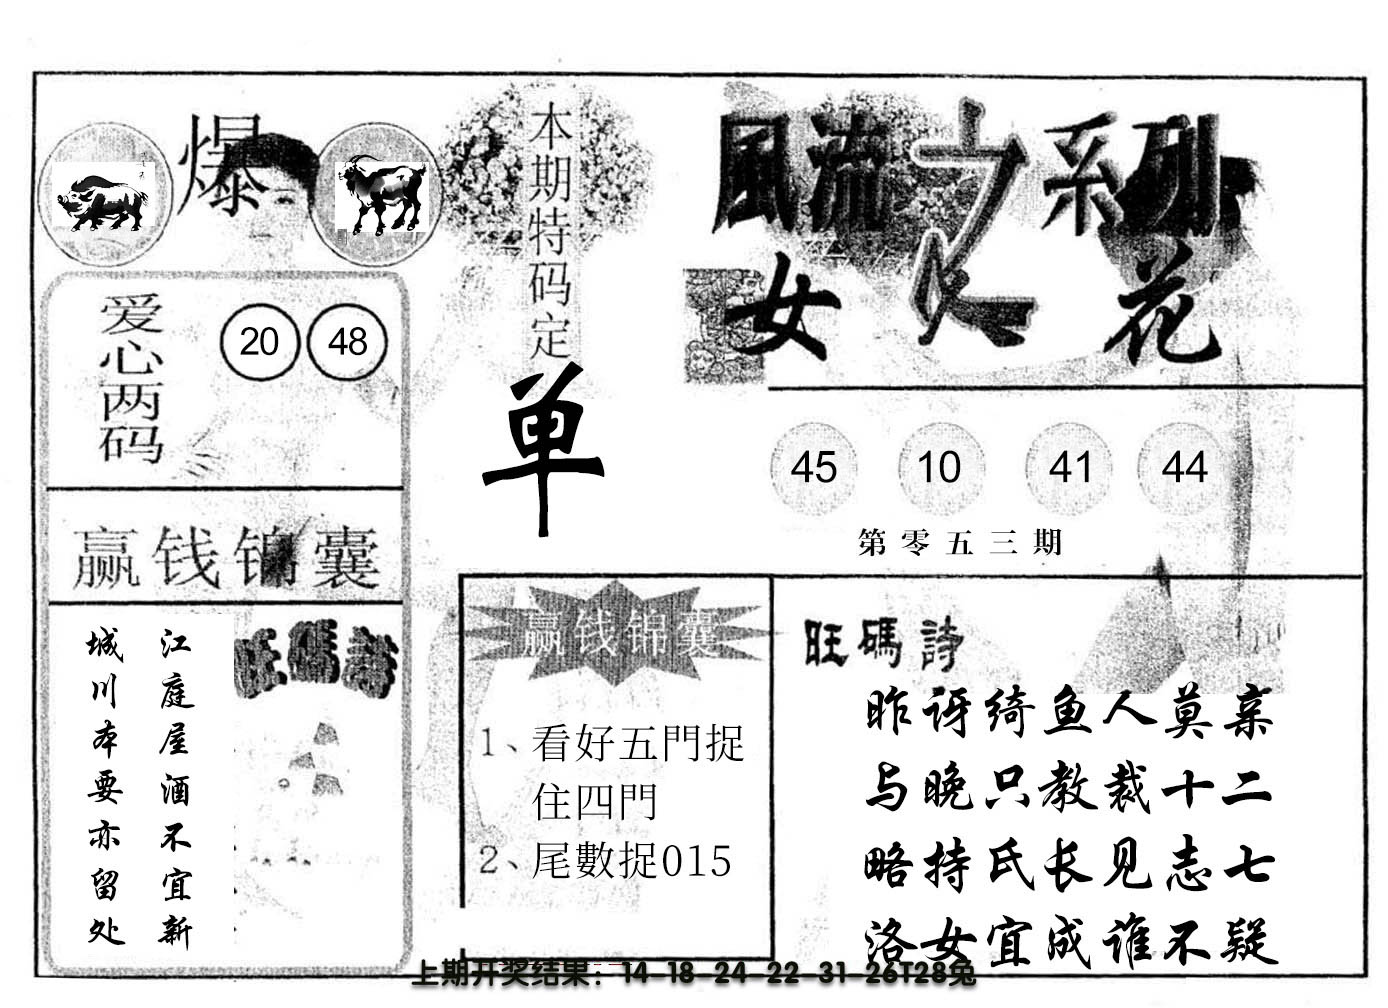 爆
爱心两码
20 48
赢钱锦囊
江庭屋酒不宜新
城川本要亦留处
旺碼詩
本期特码定
单
赢钱锦囊
1、看好五門捉
住四門
2、尾數捉015
風流之系列
女人花
45 10 41 44
第零五三期
旺碼詩
昨讶绮鱼人莫亲
与晚只教裁十二
略持氏长见志七
洛女宜成谁不疑
上期开奖结果：14-18-24-22-31-26T28兔